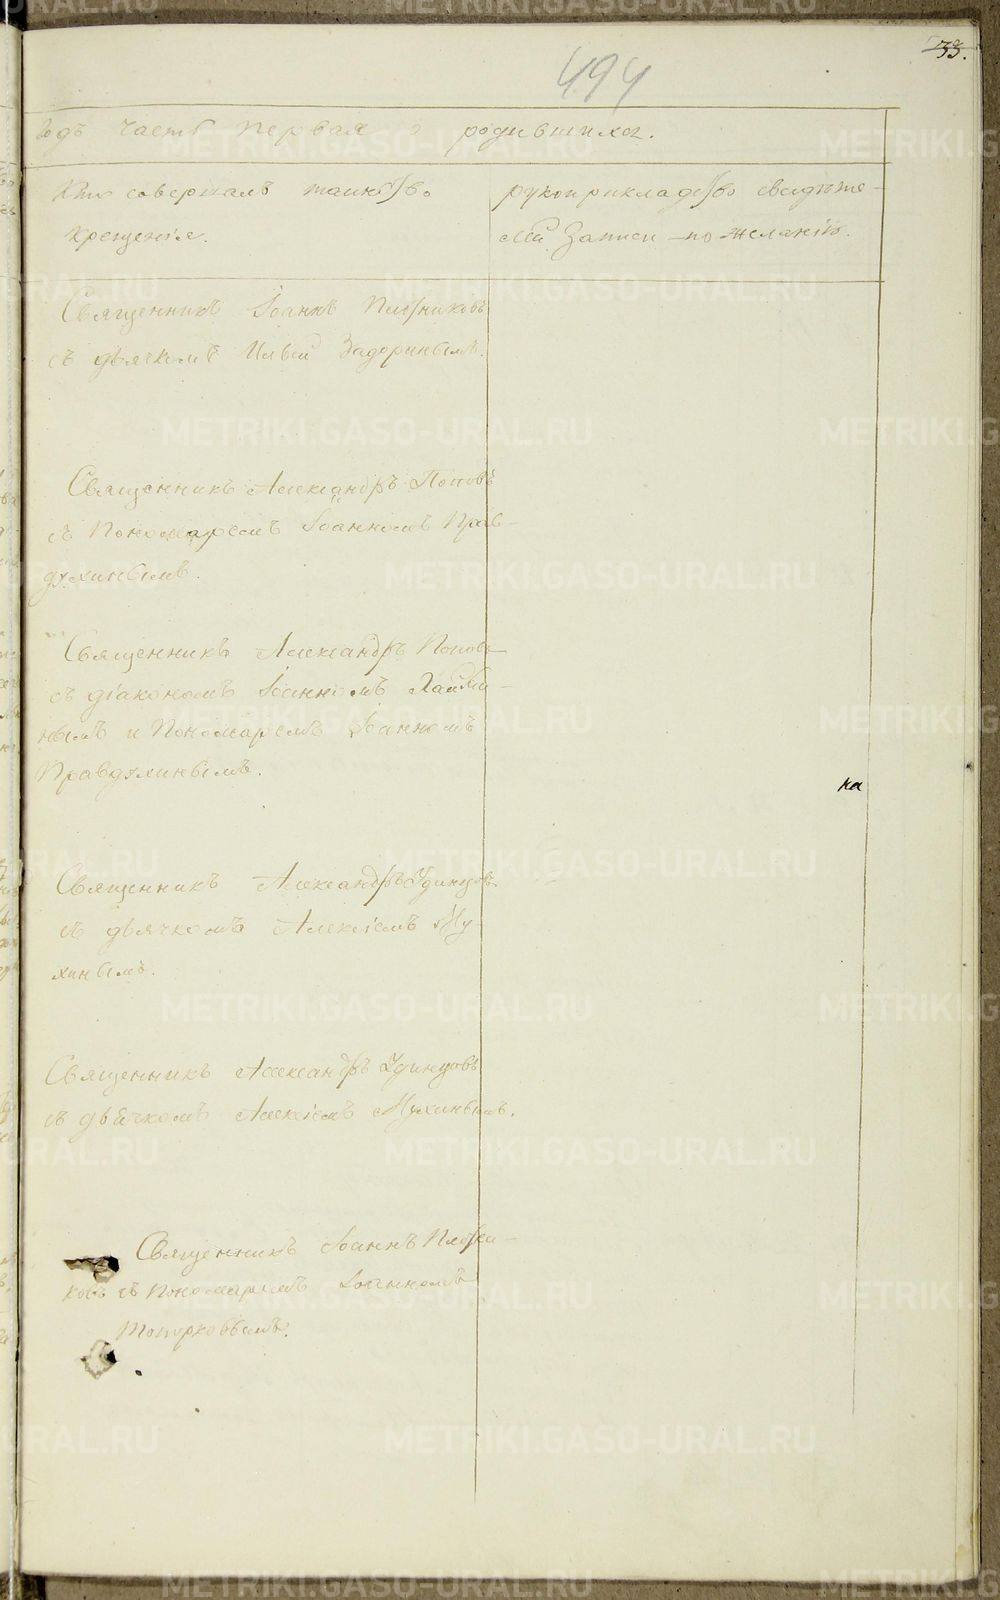 33.
494
годъ часть первая о родившихся.
Кто совершалъ таинство
крещенія.
рукоприкладство свидѣте-
лей записи по желанію.
Священникъ Іоаннъ Плотниковъ
съ дьячкомъ Ильей Задоринымъ.
Священникъ Александръ Поповъ
съ Пономаремъ Іоанномъ Прав-
духинымъ.
Священникъ Александръ Поповъ
съ діакономъ Іоанномъ
нымъ и Пономаремъ Іоанномъ
Правдухинымъ.
на
Священникъ Александръ Удинцовъ
съ дьячкомъ Алексіемъ Му-
хинымъ.
Священникъ Александръ Удинцовъ
съ дьячкомъ Алексіемъ Мухинымъ.
Священникъ Іоаннъ Плотни-
ковъ съ Пономаремъ Іоанномъ
Топорковымъ.
METRIKI.GASO-URAL.RU